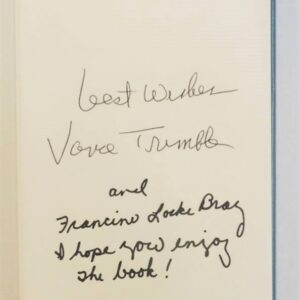 Best Wishes
Vance Trimble
and
Francine Locke Bray
I hope you enjoy
the book!